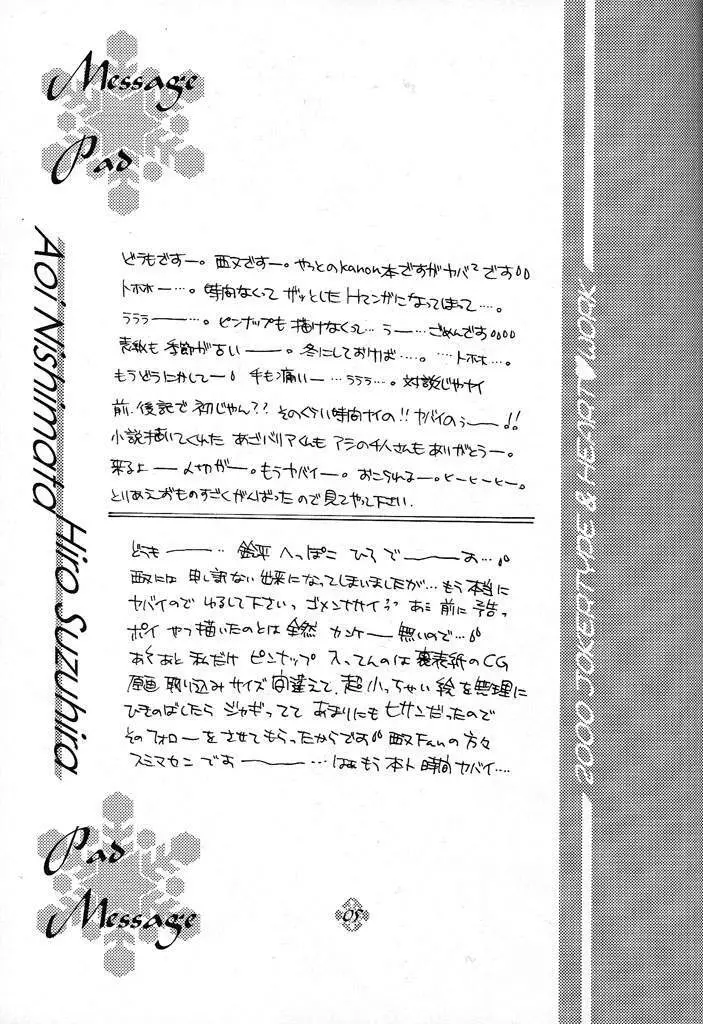 Message
Pad
Aoi Nishimata
どうもですー。西又ですー。やっとのkanon本ですがヤバ²です
トホホー…。時間なくって ザッとしたHマンガになってしまって…。
ラララー――…。ピンナップも描けなくって… うー… ごめんです
表紙も 季節が古い――。冬にしておけば…。…トホホ…。
もうどうにかしてー 手も痛いー …ラララ…。対談じゃナイ
前.後記で 初じゃん?? そのくらい時間ナイの!! ヤバイのぅ――!!
小説描いてくれた あざバリアくんも アシの千人さんも ありがとうー。
来るよ ー 〆切がー。もうヤバイー。おこられるー。ヒーヒーヒー。
とりあえおものすごくがんばった ので 見てやって下さい.
Hiro Suzuhira
どうも―――‥ 鈴平 へっぽこ ひろ で―――お…
西又には 申し訳ない 出来になってしまいましたが… もう 本当に
ヤバイので ゆるして下さいっ ゴメンナサイ?? あと 前に 予告っ
ポイ やつ 描いたのとは 全然 カンケー 無いので…
あくあと 私だけ ピンナップ 入ってんのは 裏表紙の CG
原画 取り込み サイズ 間違えて、超 小っちゃい 絵 を 無理に
ひきのばしたら ジャギってて あまりにも ヒサンだったので
その フォロー を させて もらったからです 西又 Fan の 方々
スミマセン でお―――…はぁ もう 本ト 時間 ヤバイ‥‥
Pad
Message
05
2000 JOKERTYPE & HEART♥WORK